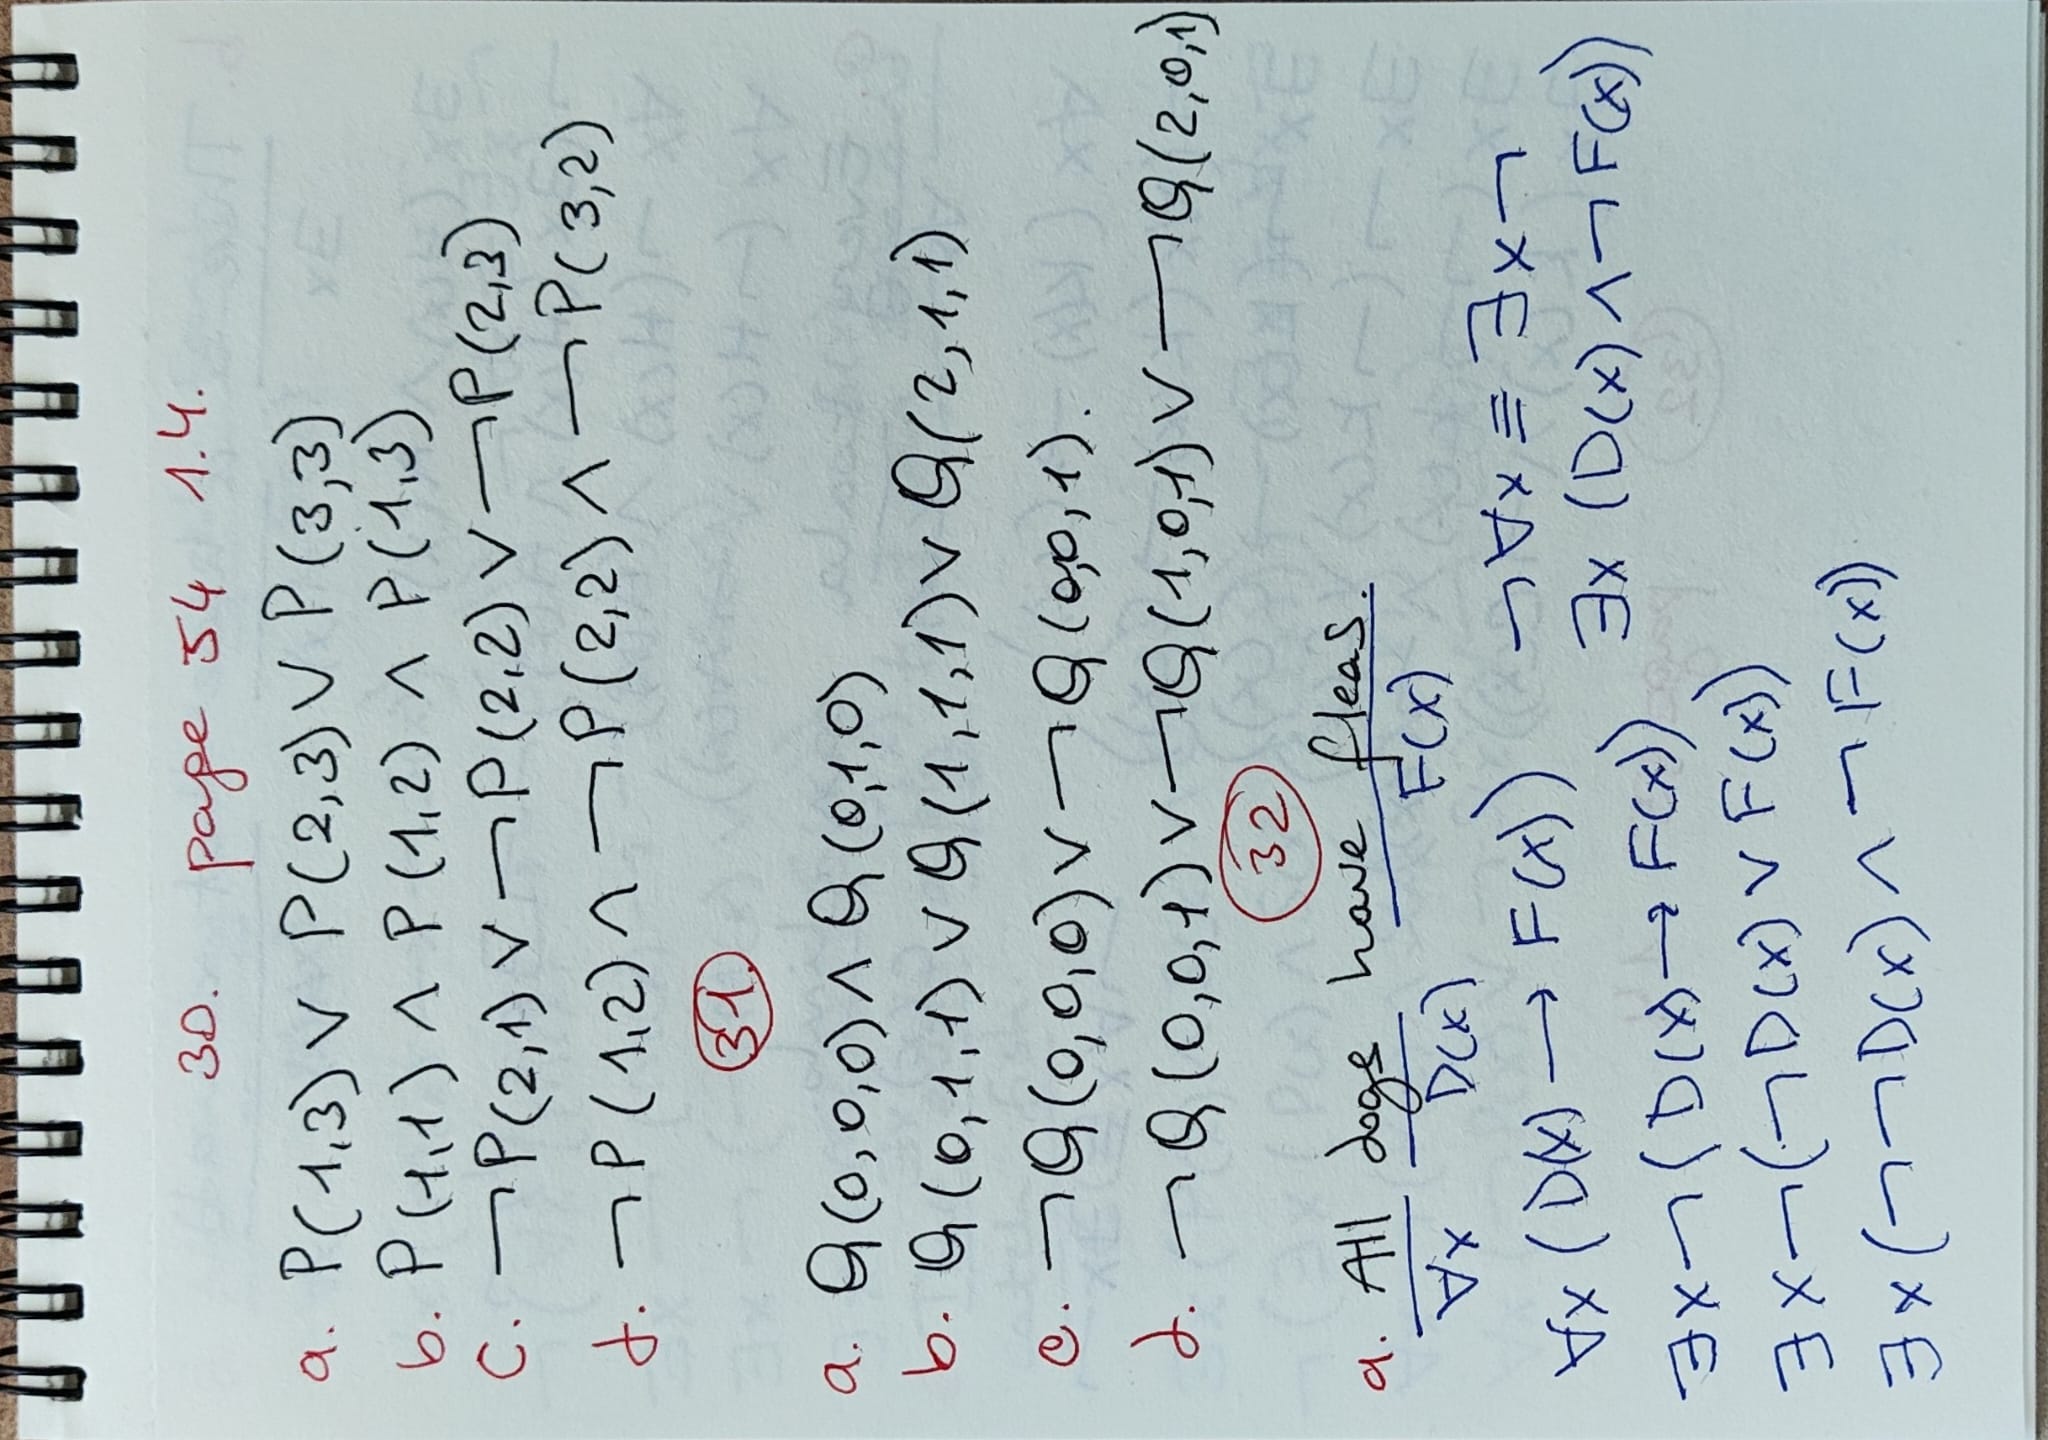 30. page 54 1.4.
a. P(1,3) ∨ P(2,3) ∨ P(3,3)
b. P(1,1) ∧ P(1,2) ∧ P(1,3)
c. ¬P(2,1) ∨ ¬P(2,2) ∨ ¬P(2,3)
d. ¬P(1,2) ∧ ¬P(2,2) ∧ ¬P(3,2)
31.
a. Q(0,0,0) ∧ Q(0,1,0)
b. Q(0,1,1) ∨ Q(1,1,1) ∨ Q(2,1,1)
c. ¬Q(0,0,0) ∨ ¬Q(0,0,1).
d. ¬Q(0,0,1) ∨ ¬Q(1,0,1) ∨ ¬Q(2,0,1)
32
a. All dogs have fleas.
∀x D(x) F(x)
¬∀x ≡ ∃x¬
∀x (D(x) → F(x))
∃x (D(x) ∧ ¬F(x))
∃x ¬(D(x) → F(x))
∃x ¬(¬D(x) ∨ F(x))
∃x (¬¬D(x) ∧ ¬F(x))